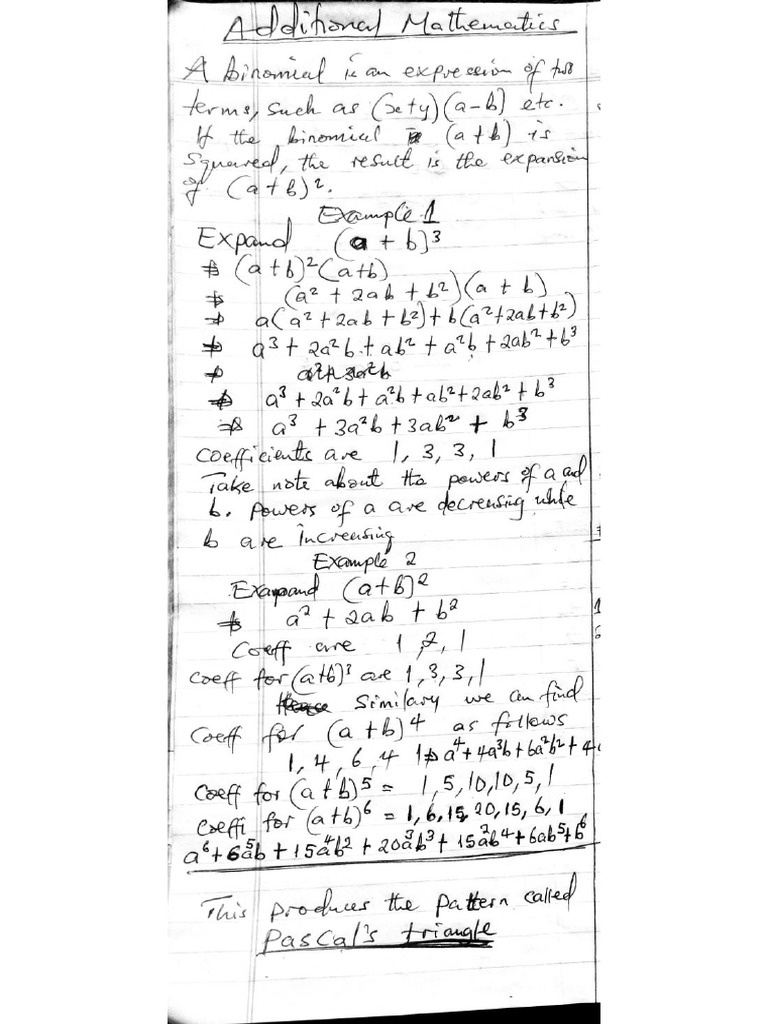 Additional Mathematics
A binomial is an expression of two
terms, such as (x+y) (a-b) etc.
If the binomial (a+b) is
squared, the result is the expansion
of (a+b)².
Example 1
Expand (a + b)³
⇒ (a+b)²(a+b)
⇒ (a² + 2ab + b²)(a + b)
⇒ a(a² + 2ab + b²) + b(a² + 2ab + b²)
⇒ a³ + 2a²b + ab² + a²b + 2ab² + b³
⇒
⇒ a³ + 2a²b + a²b + ab² + 2ab² + b³
⇒ a³ + 3a²b + 3ab² + b³
Coefficients are 1, 3, 3, 1
Take note about the powers of a and
b. Powers of a are decrensing while
b are increasing
Example 2
Exapand (a+b)²
⇒ a² + 2ab + b²
Coeff are 1, 2, 1
Coeff for (a+b)³ are 1, 3, 3, 1
Similary we can find
Coeff for (a+b)⁴ as follows
1, 4, 6, 4 1 ⇒ a⁴ + 4a³b + 6a²b² + 4
Coeff for (a+b)⁵ = 1, 5, 10, 10, 5, 1
Coeffi for (a+b)⁶ = 1, 6, 15, 20, 15, 6, 1
a⁶ + 6a⁵b + 15a⁴b² + 20a³b³ + 15a²b⁴ + 6ab⁵ + b⁶
This produces the pattern called
Pascal's triangle